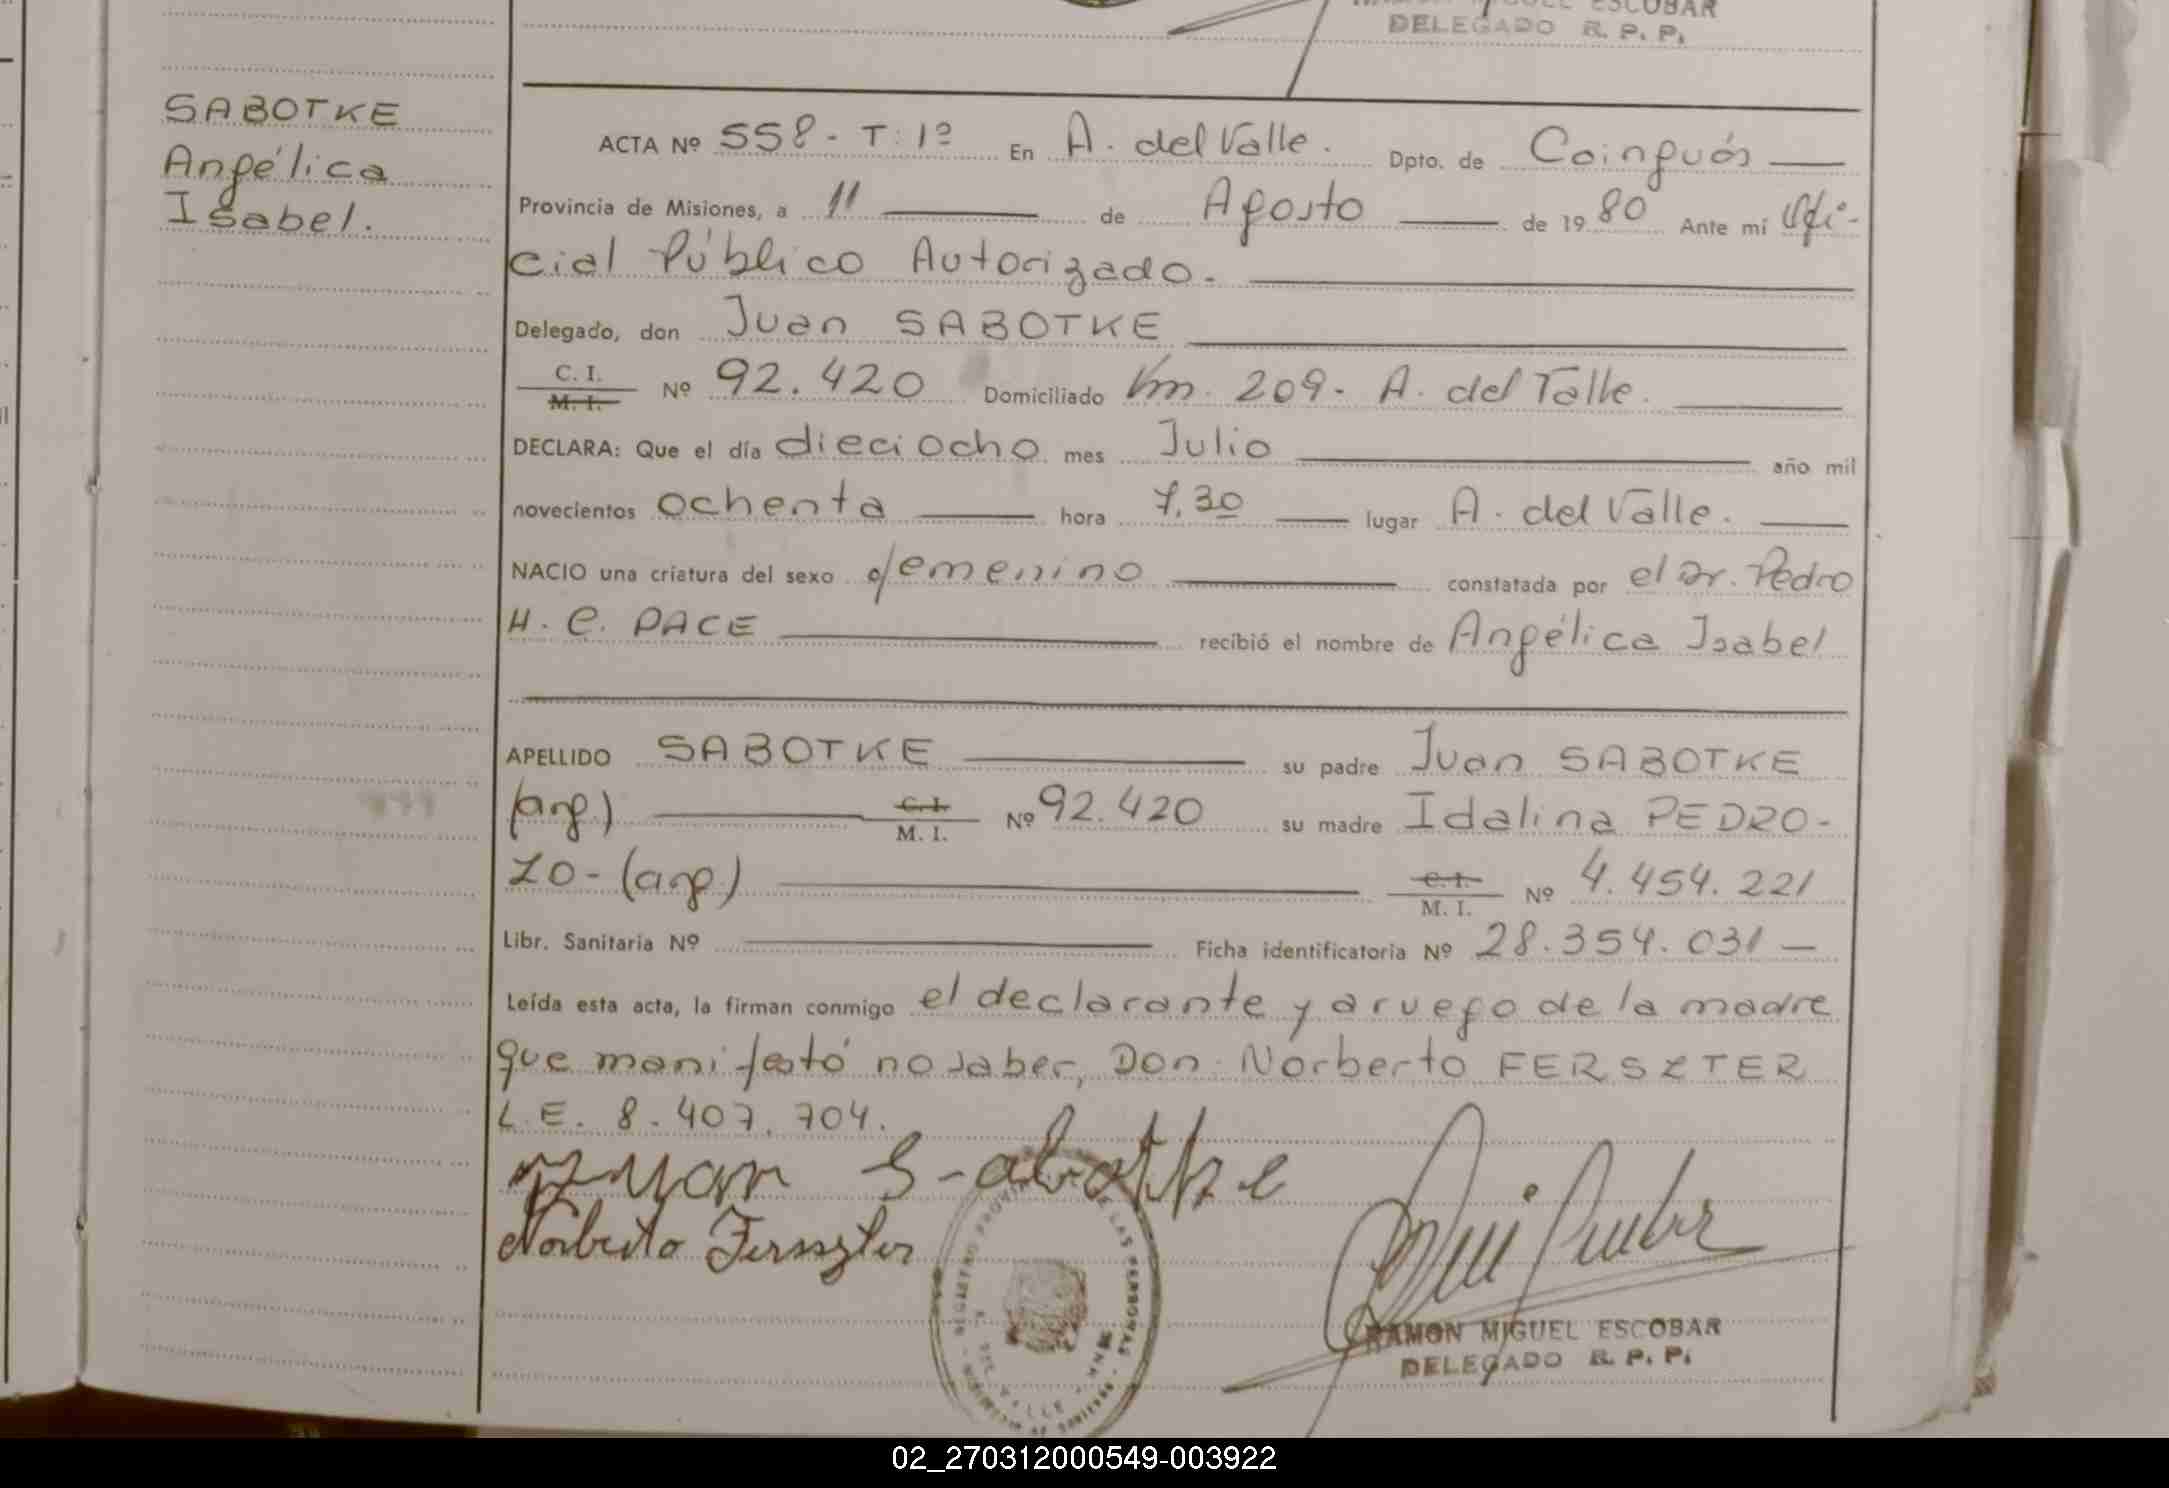 MIGUEL ESCOBAR
DELEGADO R. P. P.
SABOTKE
Angélica
Isabel.
ACTA Nº 558 - T: 1º En A. del Valle. Dpto. de Cainguás
Provincia de Misiones, a 11 de Agosto de 1980 Ante mí Ofi-
cial Público Autorizado.
Delegado, don Juan SABOTKE
C. I.
M. I. Nº 92.420 Domiciliado Km. 209 - A. del Valle.
DECLARA: Que el día dieciocho mes Julio año mil
novecientos ochenta hora 7,30 lugar A. del Valle.
NACIO una criatura del sexo femenino constatada por el Dr. Pedro
H. C. PACE recibió el nombre de Angélica Isabel
APELLIDO SABOTKE su padre Juan SABOTKE
(arg.) C. I. M. I. Nº 92.420 su madre Idalina PEDRO-
ZO - (arg.) C. I. M. I. Nº 4.454.221
Libr. Sanitaria Nº Ficha identificatoria Nº 28.354.031 —
Leída esta acta, la firman conmigo el declarante y a ruego de la madre
que manifestó no saber, Don Norberto FERSZTER
L.E. 8.407.704.
Juan Sabotke
Norberto Ferszter
RAMON MIGUEL ESCOBAR
DELEGADO R. P. P.
02_270312000549-003922